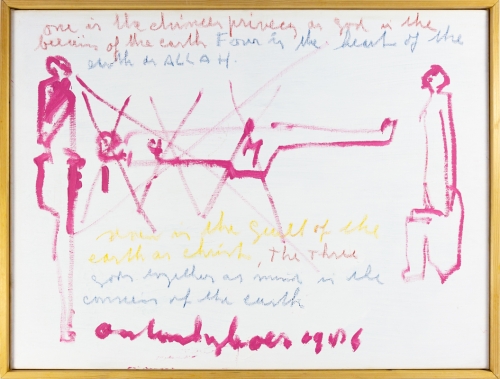 one is the chinees privecy as god is the
of the earth Four is the. heart of the
as ALLAH.
is the guilt of the
earth as christ, the three
gods together as mind is the
of the earth